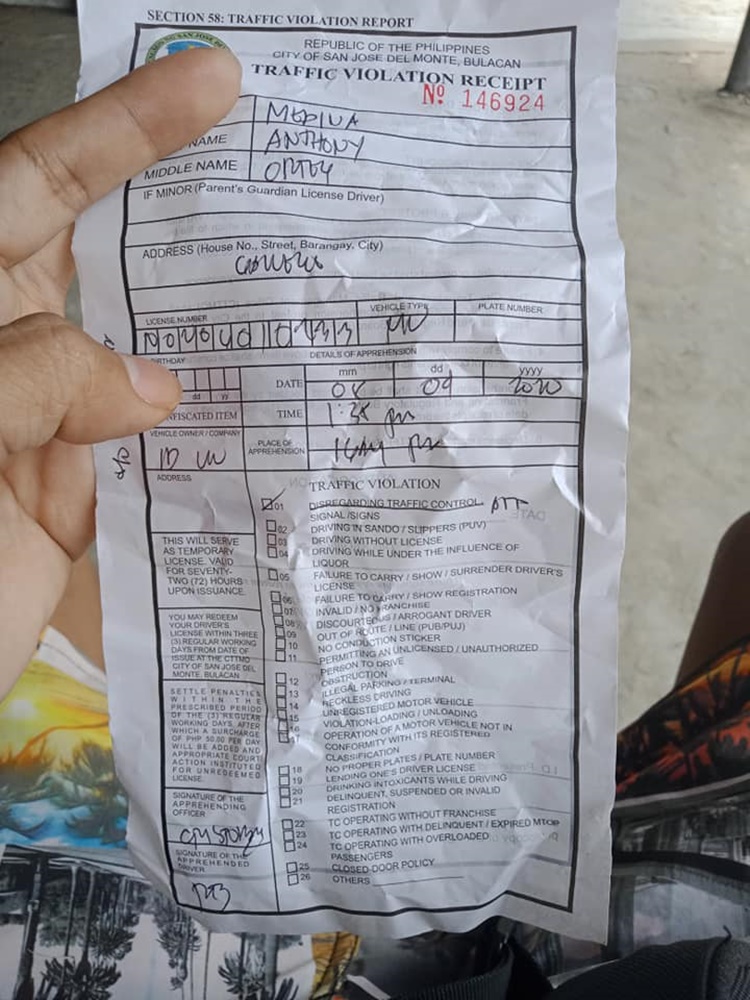 SECTION 58: TRAFFIC VIOLATION REPORT
REPUBLIC OF THE PHILIPPINES
CITY OF SAN JOSE DEL MONTE, BULACAN
TRAFFIC VIOLATION RECEIPT
Nº 146924
MEDINA
NAME ANTHONY
MIDDLE NAME
IF MINOR (Parent's Guardian License Driver)
ADDRESS (House No., Street, Barangay, City)
LICENSE NUMBER VEHICLE TYPE PLATE NUMBER
DETAILS OF APPREHENSION
DATE mm dd yyyy
08 09 2020
dd yy
TIME 1:38 pm
VEHICLE OWNER / COMPANY
PLACE OF APPREHENSION
ADDRESS
TRAFFIC VIOLATION
01 DISREGARDING TRAFFIC CONTROL
SIGNAL /SIGNS
02 DRIVING IN SANDO / SLIPPERS (PUV)
03 DRIVING WITHOUT LICENSE
04 DRIVING WHILE UNDER THE INFLUENCE OF
LIQUOR
05 FAILURE TO CARRY / SHOW / SURRENDER DRIVER'S
LICENSE
06 FAILURE TO CARRY / SHOW REGISTRATION
07 INVALID / NO FRANCHISE
08 DISCOURTEOUS / ARROGANT DRIVER
09 OUT OF ROUTE / LINE (PUB/PUJ)
10 NO CONDUCTION STICKER
11 PERMITTING AN UNLICENSED / UNAUTHORIZED
PERSON TO DRIVE
12 OBSTRUCTION
13 ILLEGAL PARKING / TERMINAL
14 RECKLESS DRIVING
15 UNREGISTERED MOTOR VEHICLE
16 VIOLATION-LOADING / UNLOADING
17 OPERATION OF A MOTOR VEHICLE NOT IN
CONFORMITY WITH ITS REGISTERED
CLASSIFICATION
18 NO PROPER PLATES / PLATE NUMBER
19 LENDING ONE'S DRIVER LICENSE
20 DRINKING INTOXICANTS WHILE DRIVING
21 DELINQUENT, SUSPENDED OR INVALID
REGISTRATION
22 TC OPERATING WITHOUT FRANCHISE
23 TC OPERATING WITH DELINQUENT / EXPIRED MTOP
24 TC OPERATING WITH OVERLOADED
PASSENGERS
25 CLOSED DOOR POLICY
26 OTHERS
THIS WILL SERVE
AS TEMPORARY
LICENSE. VALID
FOR SEVENTY-
TWO (72) HOURS
UPON ISSUANCE.
YOU MAY REDEEM
YOUR DRIVER'S
LICENSE WITHIN THREE
(3) REGULAR WORKING
DAYS FROM DATE OF
ISSUE AT THE CTTMO
CITY OF SAN JOSE DEL
MONTE, BULACAN
SETTLE PENALTIES
WITHIN THE
PRESCRIBED PERIOD
OF THE (3) REGULAR
WORKING DAYS, AFTER
WHICH A SURCHARGE
OF PHP 50.00 PER DAY
WILL BE ADDED AND
APPROPRIATE COURT
ACTION INSTITUTED
FOR UNREDEEMED
LICENSE.
SIGNATURE OF THE
APPREHENDING
OFFICER
SIGNATURE OF THE
APPREHENDED
DRIVER